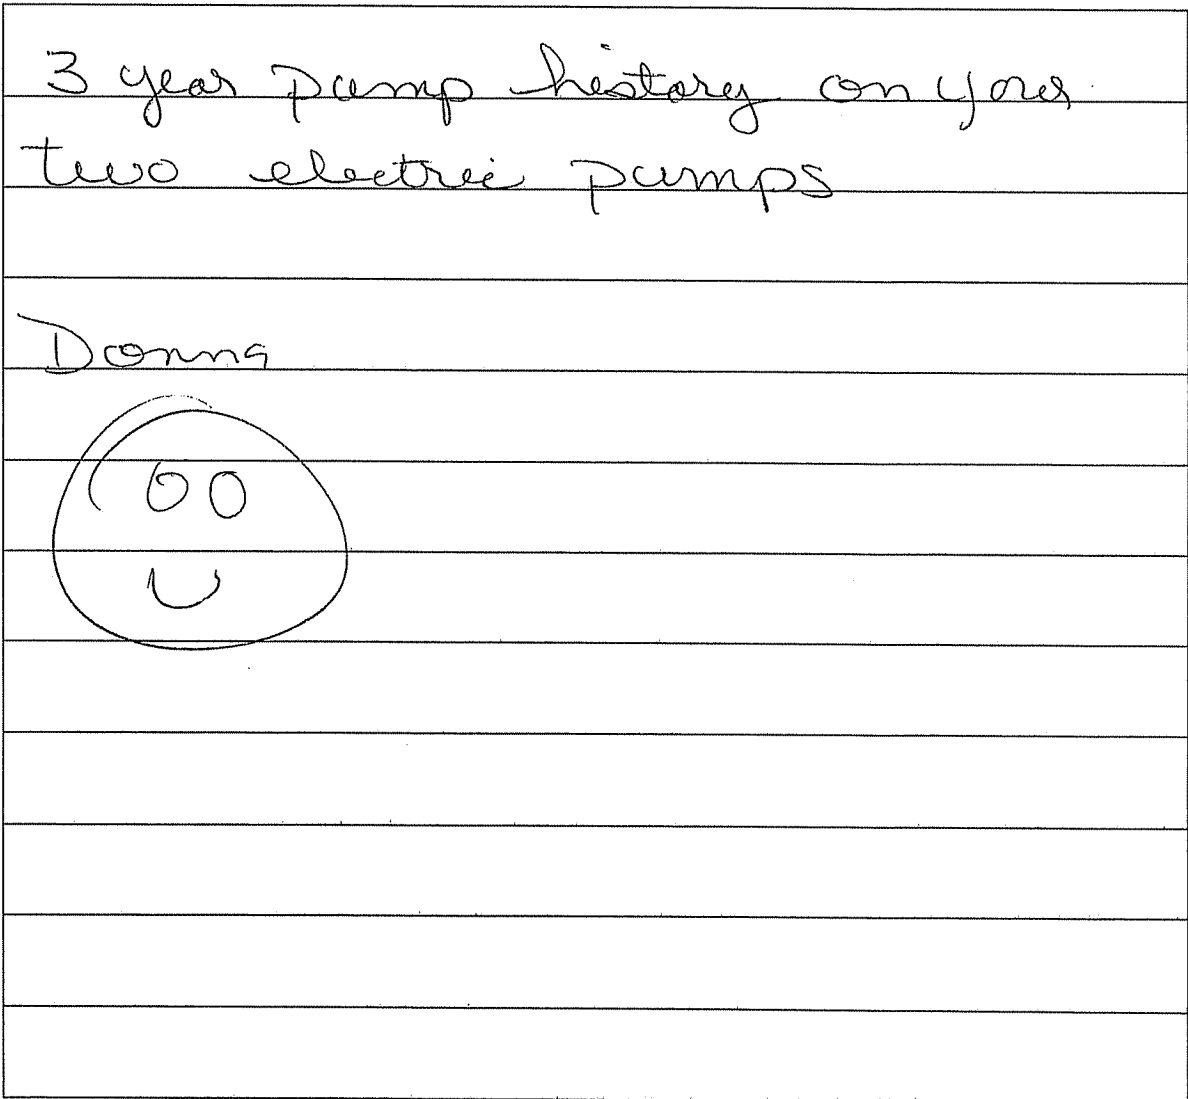 3 year pump history on your
two electric pumps
Donna